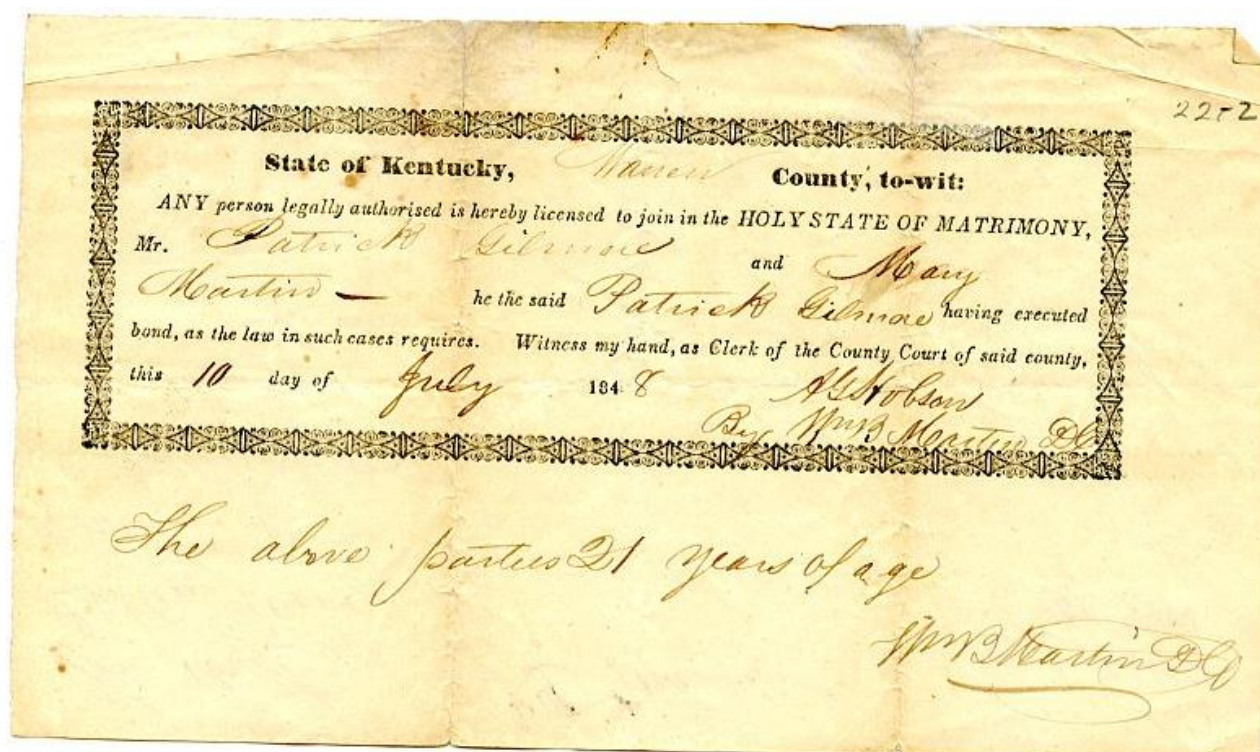 22-2
State of Kentucky, Warren County, to-wit:
ANY person legally authorised is hereby licensed to join in the HOLY STATE OF MATRIMONY,
Mr. Patrick Gilmore and Mary
Martin — he the said Patrick Gilmore having executed
bond, as the law in such cases requires. Witness my hand, as Clerk of the County Court of said county,
this 10 day of July 1848 AG Hobson
By WmB Martin DC
The above parties 21 years of age
WmB Martin DC